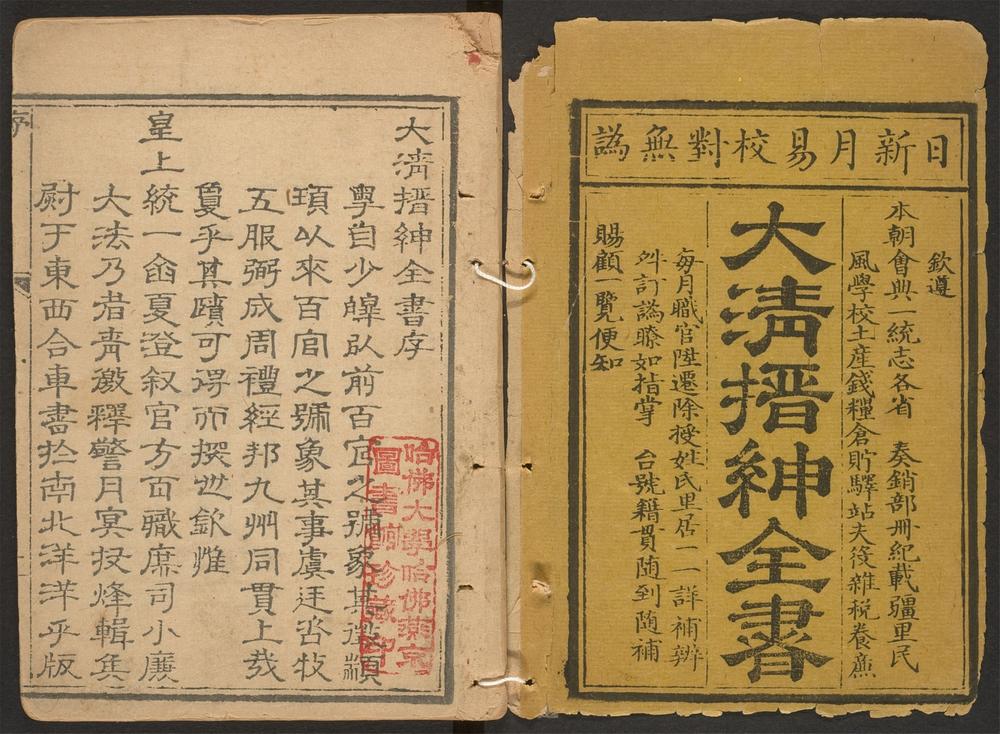 日新月易校對無譌
欽遵
本朝會典一統志各省　奏銷部冊紀載疆里民
風學校土產錢糧倉貯驛站夫役雜稅養廉
大清搢紳全書
每月職官陞遷除授姓氏里居一一詳補辨
舛訂譌瞭如指掌　台號籍貫隨到隨補
賜顧一覽便知
大清搢紳全書序
粵自少皞以前百官之號象其徵顓
頊以來百官之號象其事虞廷咨牧
五服弼成周禮經邦九州同貫上哉
敻乎其蹟可得而撰也欽惟
皇上統一函夏澄叙官方百職庶司小廉
大法乃者靑徼釋警月冥投烽輯兵
尉于東西合車書於南北洋洋乎版
序
哈佛大學哈佛燕京
圖書館珍藏印